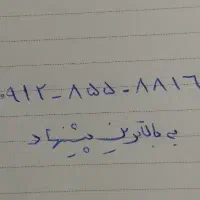 ۰۹۱۲-۸۵۵-۸۸۱۶
به بالاترین پیشنهاد